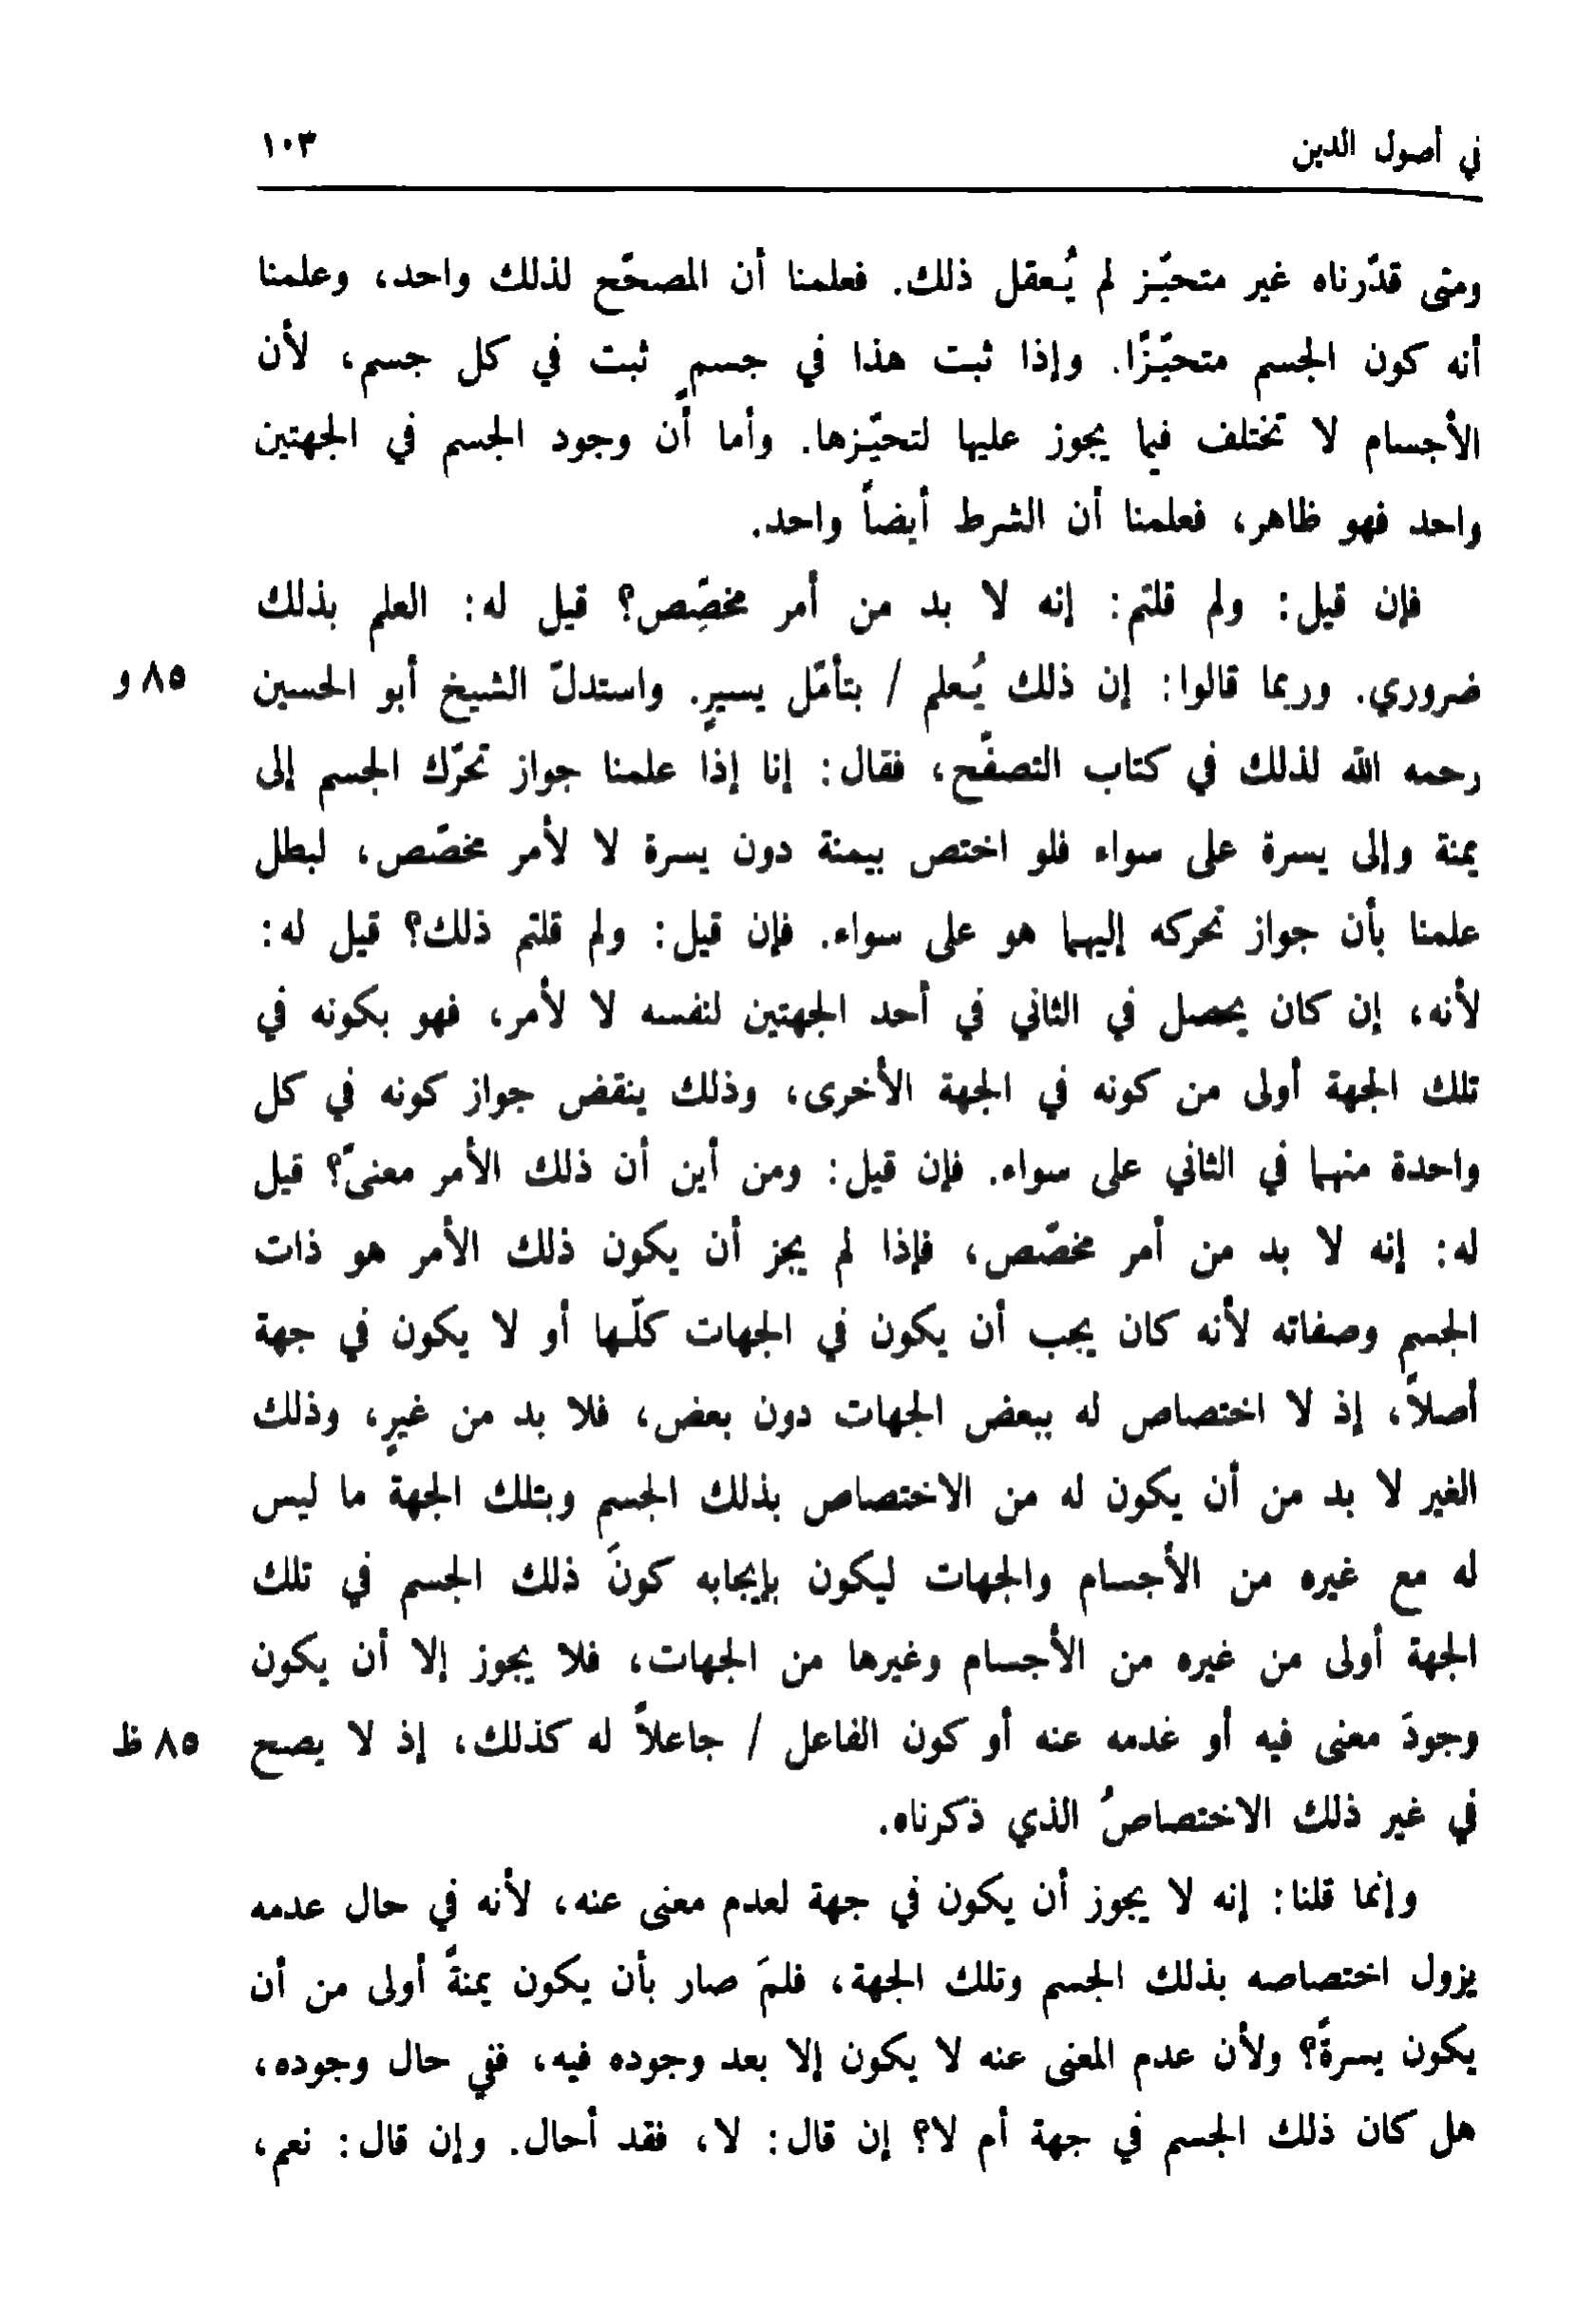 في أصول الدين ١٠٣
ومتى قدّرناه غير متحيّز لم يُعقل ذلك. فعلمنا أن المصحّح لذلك واحد، وعلمنا
أنه كون الجسم متحيّزًا. وإذا ثبت هذا في جسمٍ ثبت في كل جسم، لأن
الأجسام لا تختلف فيما يجوز عليها لتحيّزها. وأما أن وجود الجسم في الجهتين
واحد فهو ظاهر، فعلمنا أن الشرط أيضاً واحد.
فإن قيل: ولم قلتم: إنه لا بد من أمر مخصِّص؟ قيل له: العلم بذلك
ضروري. وربما قالوا: إن ذلك يُعلم / بتأمّل يسيرٍ. واستدلّ الشيخ أبو الحسين ٨٥ و
رحمه الله لذلك في كتاب التصفّح، فقال: إنا إذا علمنا جواز تحرّك الجسم إلى
يمنة وإلى يسرة على سواء فلو اختص بيمنة دون يسرة لا لأمر مخصّص، لبطل
علمنا بأن جواز تحركه إليهما هو على سواء. فإن قيل: ولم قلتم ذلك؟ قيل له:
لأنه، إن كان يحصل في الثاني في أحد الجهتين لنفسه لا لأمر، فهو بكونه في
تلك الجهة أولى من كونه في الجهة الأخرى، وذلك ينقض جواز كونه في كل
واحدة منهما في الثاني على سواء. فإن قيل: ومن أين أن ذلك الأمر معنىً؟ قيل
له: إنه لا بد من أمر مخصّص، فإذا لم يجز أن يكون ذلك الأمر هو ذات
الجسم وصفاته لأنه كان يجب أن يكون في الجهات كلّها أو لا يكون في جهة
أصلاً، إذ لا اختصاص له ببعض الجهات دون بعض، فلا بد من غيرٍ، وذلك
الغير لا بد من أن يكون له من الاختصاص بذلك الجسم وبتلك الجهة ما ليس
له مع غيره من الأجسام والجهات ليكون بإيجابه كونَ ذلك الجسم في تلك
الجهة أولى من غيره من الأجسام وغيرها من الجهات، فلا يجوز إلا أن يكون
وجودَ معنى فيه أو غدمه عنه أو كون الفاعل / جاعلاً له كذلك، إذ لا يصح ٨٥ ظ
في غير ذلك الاختصاصُ الذي ذكرناه.
وإنما قلنا: إنه لا يجوز أن يكون في جهة لعدم معنى عنه، لأنه في حال عدمه
يزول اختصاصه بذلك الجسم وتلك الجهة، فلمَ صار بأن يكون يمنةً أولى من أن
يكون يسرةً؟ ولأن عدم المعنى عنه لا يكون إلا بعد وجوده فيه، ففي حال وجوده،
هل كان ذلك الجسم في جهة أم لا؟ إن قال: لا، فقد أحال. وإن قال: نعم،